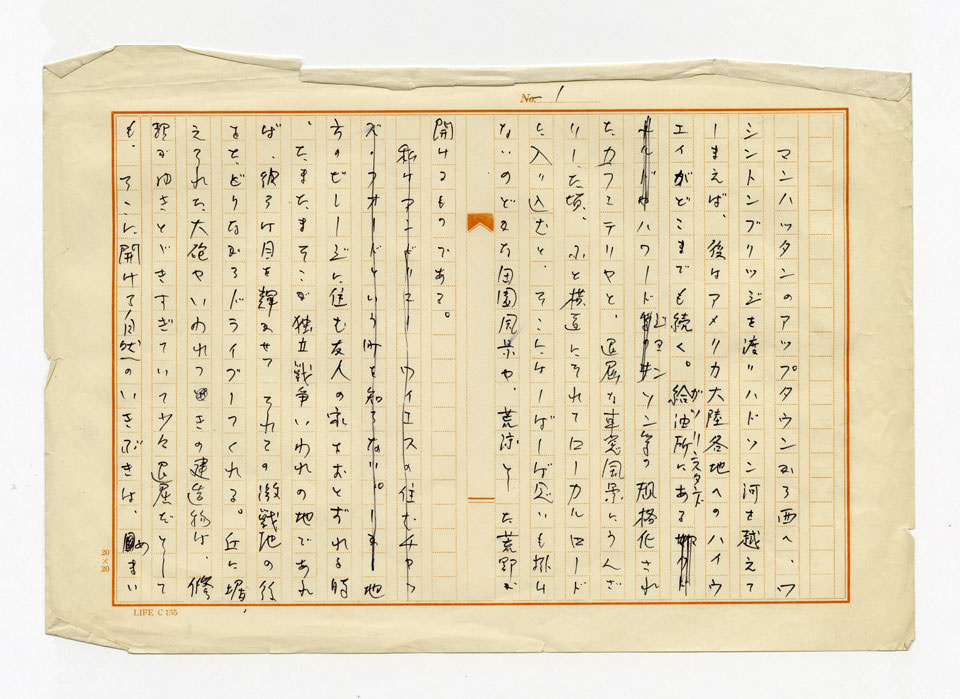 No. 1
マンハッタンのアップタウンから西へ、ワ
シントンブリッジを渡りハドソン河を越えて
しまえば、後はアメリカ大陸各地へのハイウ
エイがどこまでも続く。給油所にある
ガソリンスタンド
ハワードジョンソン等の規格化され
たカフェテリヤと、退屈な車窓風景にうんざ
りした頃、ふと横道にそれてローカルロード
に入り込むと、そこにはしばしば思いも掛け
ないのどかな田園風景や、荒涼とした荒野が
開けるものである。
私はアンドリュー・ワイエスの住むチャッ
ズ・フォードという町を知らない。 地
方のビレージに住む友人の家をおとずれる時
、たまたまそこが独立戦争いわれの地であれ
ば、彼らは目を輝かせて それての激戦地の後
をたどりながらドライブしてくれる。丘に据
えられた大砲やいわれつきの建造物は、修
理がゆきとどきすぎていて少々退屈だとして
も、そこに開ける自然へのいきぶきは、めまい
20×20
LIFE C 155